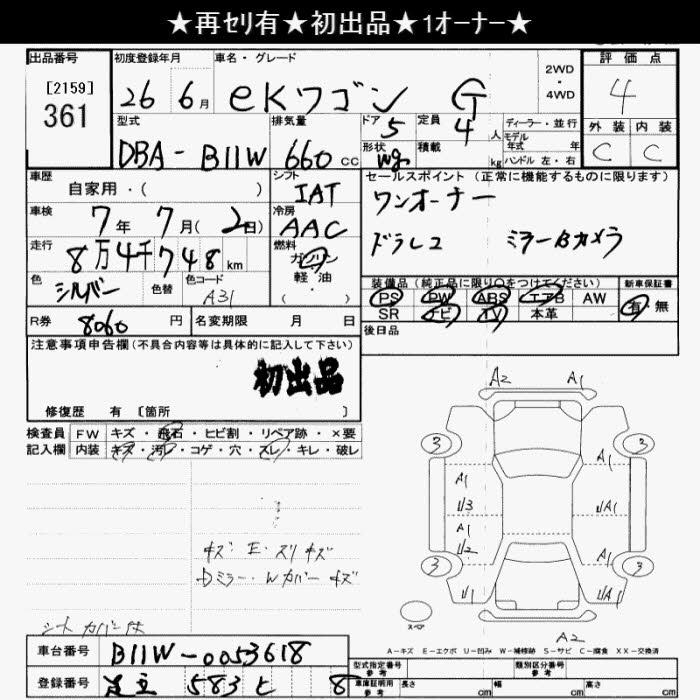 ★再セリ有★初出品★1オーナー★
出品番号 初度登録年月 車名・グレード 2WD・4WD 評価点
[2159]
361 26年 6月 eKワゴン G 4
型式 排気量 ドア 5 定員 4人 ディーラー・並行 外装 内装
DBA-B11W 660cc 形状 wg 積載 kg モデル年式 年 ハンドル 左・右 C C
車歴 自家用・( ) シフト IAT セールスポイント (正常に機能するものに限ります)
車検 7年 7月(2日) 冷房 AAC ワンオーナー
走行 8万4千748km 燃料 ガソリン ドラレコ ミラーBカメラ
軽・油
色 シルバー 色替 色コード A31 ( ・ ) 装備品 (純正品に限り○をつけてください) 新車保証書
PS PW ABS エアB AW 有 無
R券 8060円 名変期限 月 日 SR ナビ TV 本革
後日品
注意事項申告欄 (不具合内容等は具体的に記入して下さい)
初出品
修復歴 有 [箇所 ]
検査員 FW キズ・飛石・ヒビ割・リペア跡・×要
記入欄 内装 キズ・汚レ・コゲ・穴・スレ・キレ・破レ
A2 A1
3 2
A1 A1
U3 UA1
A1
U2 A1
3 3
U1 A1
スペア
A2
キズ E・スリキズ
Dミラー・Wカバー キズ
シートカバー付
A-キズ E-エクボ U-凹み W-補修跡 S-サビ C-腐食 XX-交換済
車台番号 B11W-0053618
型式指定番号 参考 類別区分番号 参考
登録番号 足立 583 と 8
車庫証明用 参考 長さ cm 幅 cm 高さ cm